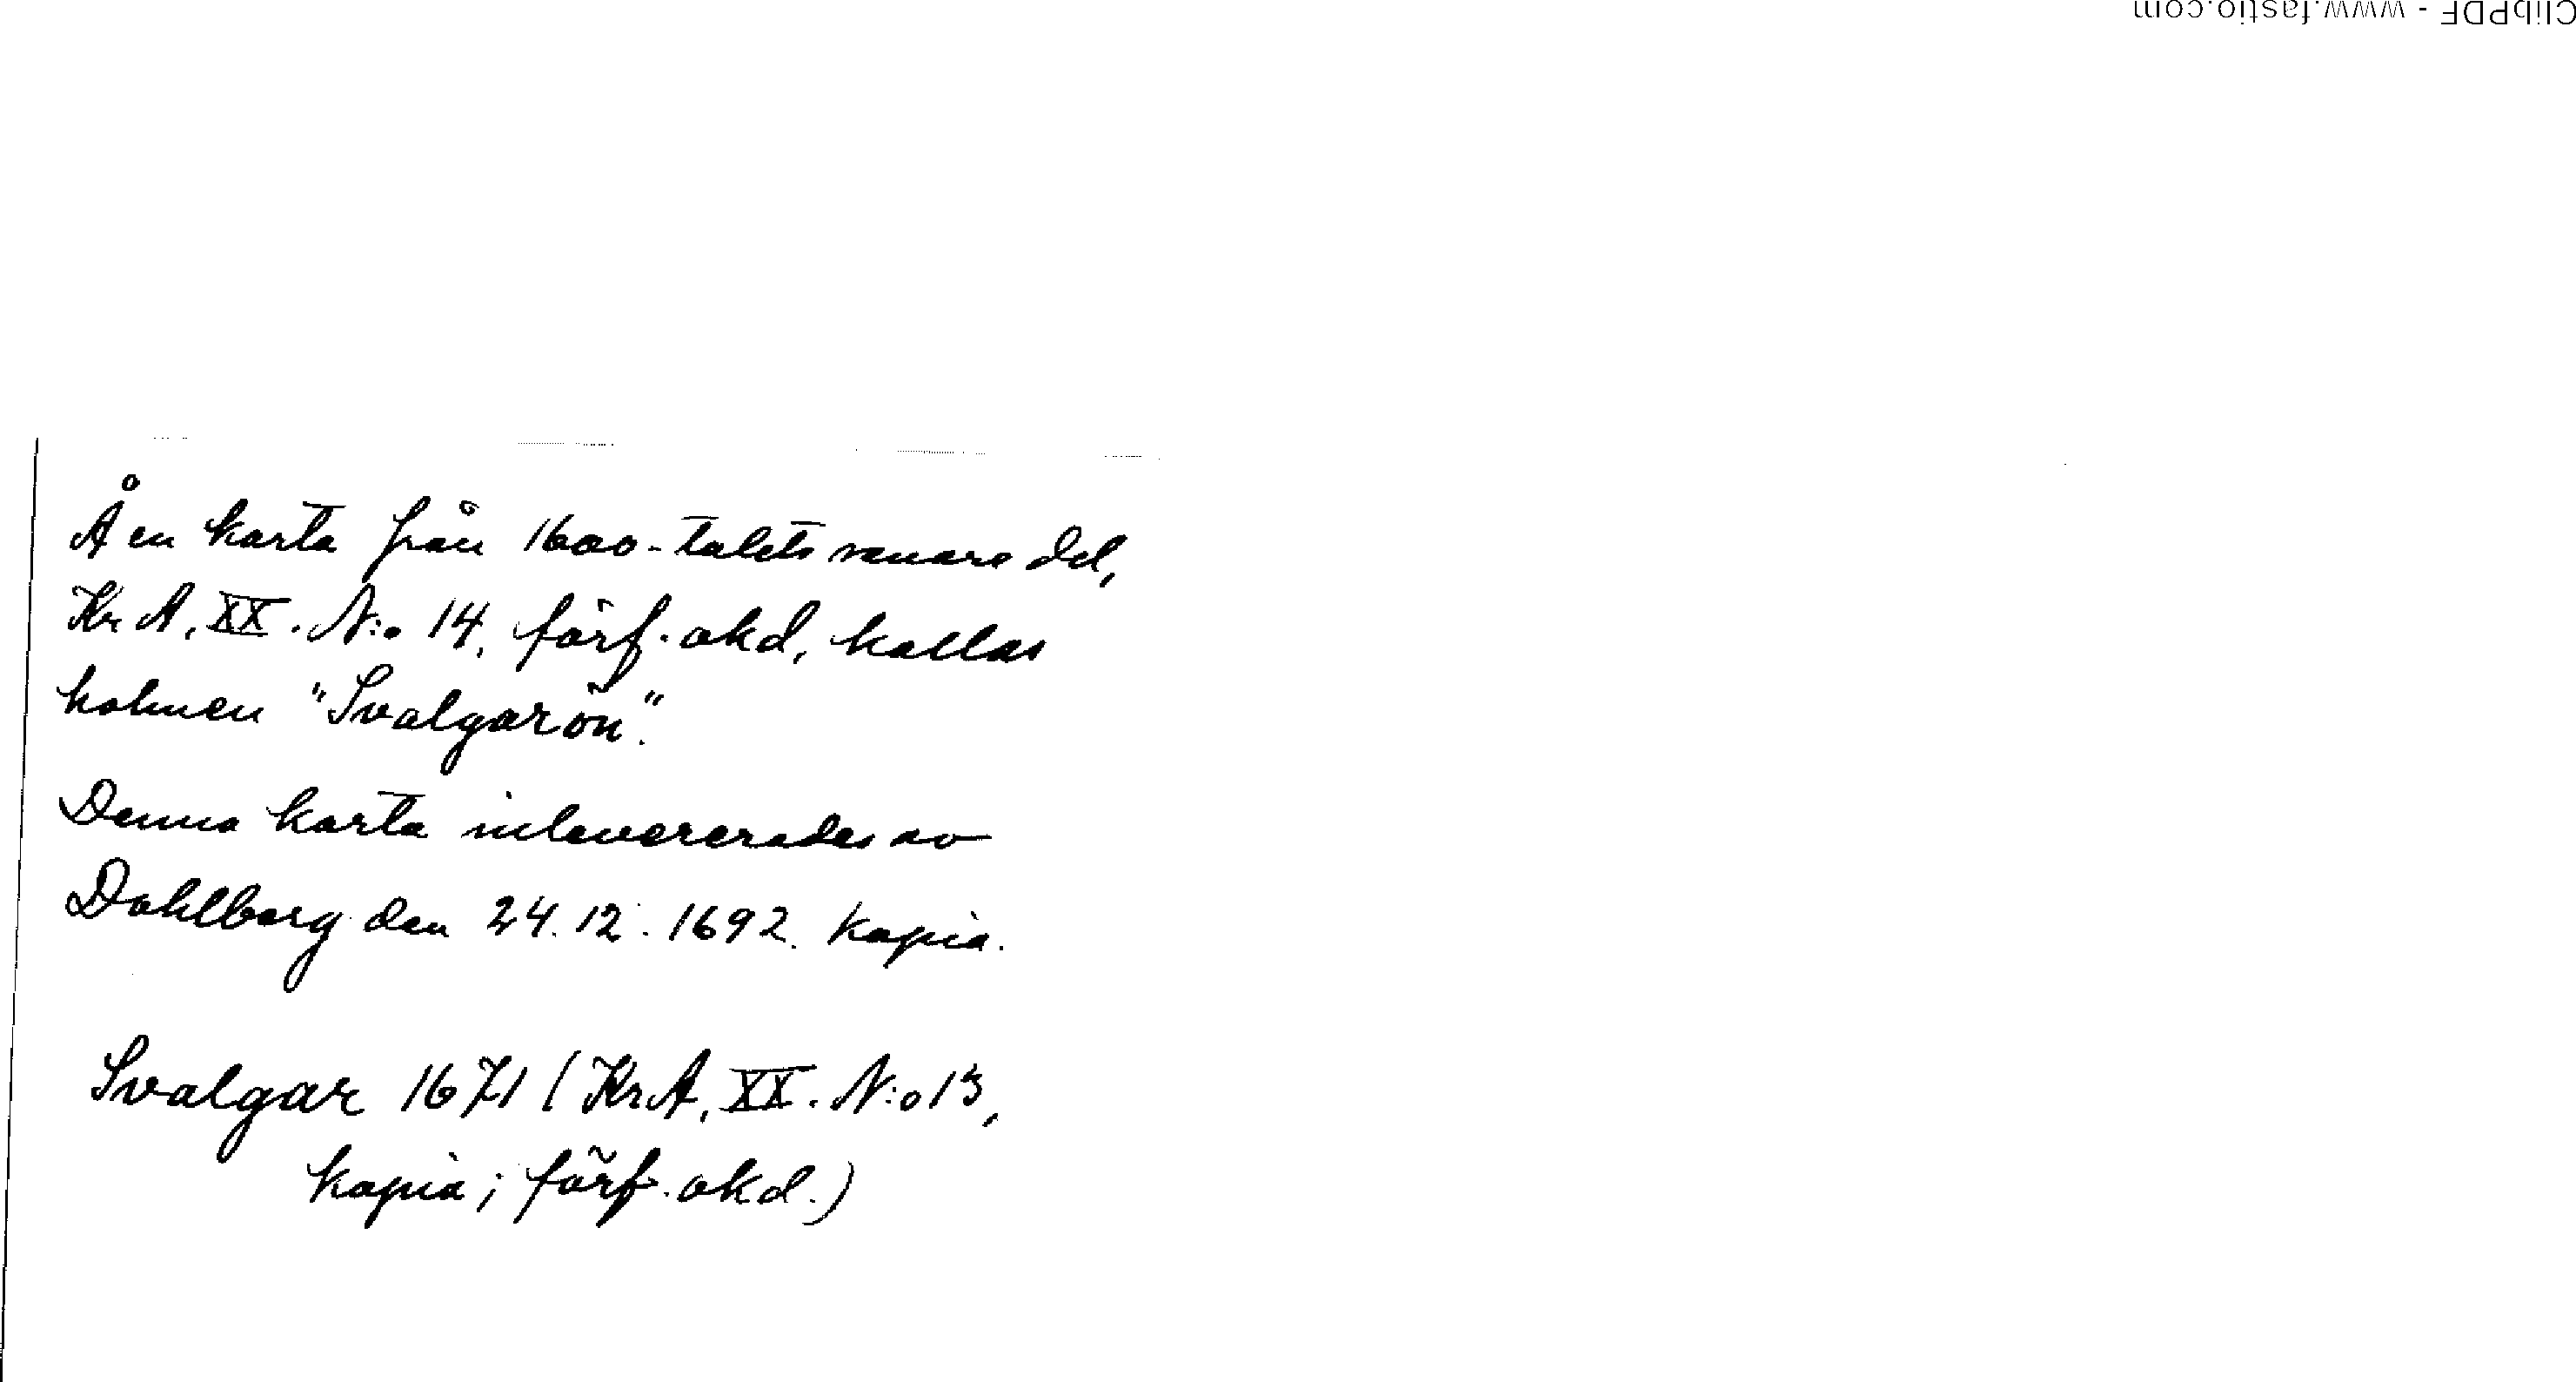 ClibPDF - www.fastio.com
Å en karta från 1600-talets senare del,
Kr A, XX. N:o 14, förf. okd, kallas
holmen "Svalgarön".
Denna karta inlevererades av
Dahlberg den 24.12.1692. Kopia.
Svalgar 1671 (KrA, XX. N:o 13,
kopia; förf. okd.)